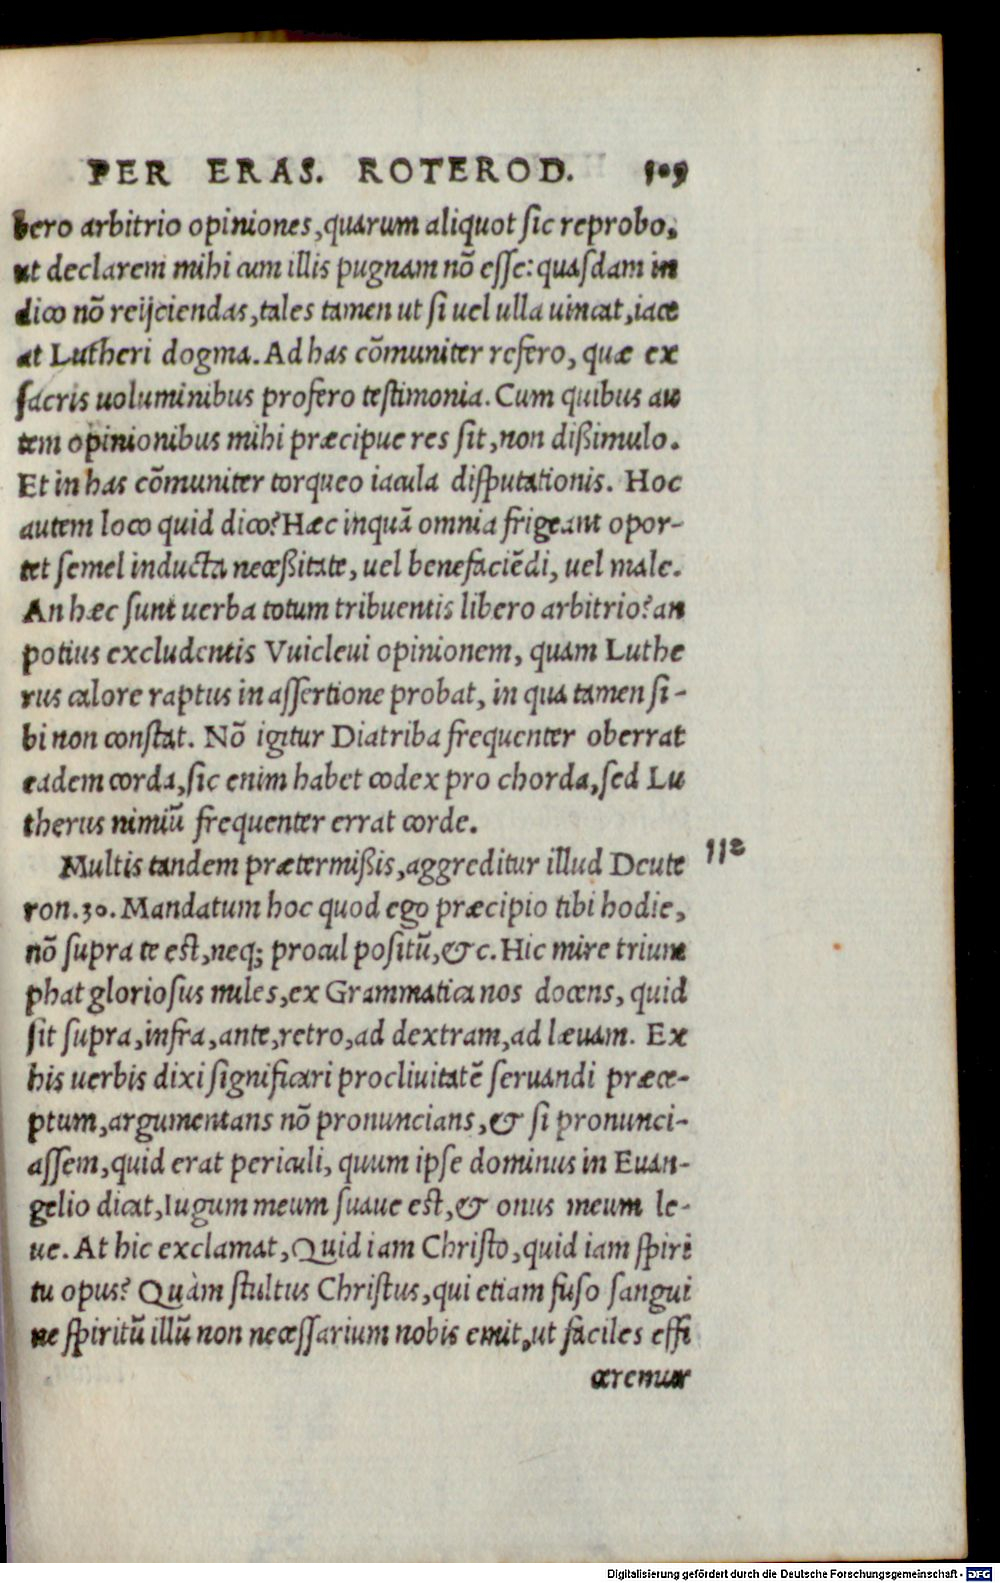 PER ERAS. ROTEROD. 509
bero arbitrio opiniones, quarum aliquot sic reprobo,
ut declarem mihi cum illis pugnam nõ esse: quasdam in
dico nõ reijciendas, tales tamen ut si uel ulla uincat, iace
at Lutheri dogma. Ad has cõmuniter refero, quæ ex
sacris uoluminibus profero testimonia. Cum quibus au
tem opinionibus mihi præcipue res sit, non dißimulo.
Et in has cõmuniter torqueo iacula disputationis. Hoc
autem loco quid dico? Hæc inquã omnia frigeant opor-
tet semel inducta neceßitate, uel benefaciẽdi, uel male.
An hæc sunt uerba totum tribuentis libero arbitrio? an
potius excludentis Vuicleui opinionem, quam Luthe
rus calore raptus in assertione probat, in qua tamen si-
bi non constat. Nõ igitur Diatriba frequenter oberrat
eadem corda, sic enim habet codex pro chorda, sed Lu
therus nimiũ frequenter errat corde.
Multis tandem prætermißis, aggreditur illud Deute 112
ron. 30. Mandatum hoc quod ego præcipio tibi hodie,
nõ supra te est, neq; procul positũ, &c. Hic mire trium
phat gloriosus miles, ex Grammatica nos docens, quid
sit supra, infra, ante, retro, ad dextram, ad læuam. Ex
his uerbis dixi significari procliuitatẽ seruandi præce-
ptum, argumentans nõ pronuncians, & si pronunci-
assem, quid erat periculi, quum ipse dominus in Euan-
gelio dicat, Iugum meum suaue est, & onus meum le-
ue. At hic exclamat, Quid iam Christo, quid iam spiri
tu opus? Quàm stultus Christus, qui etiam fuso sangui
ne spiritũ illũ non necessarium nobis emit, ut faciles effi
ceremur
Digitalisierung gefördert durch die Deutsche Forschungsgemeinschaft - DFG